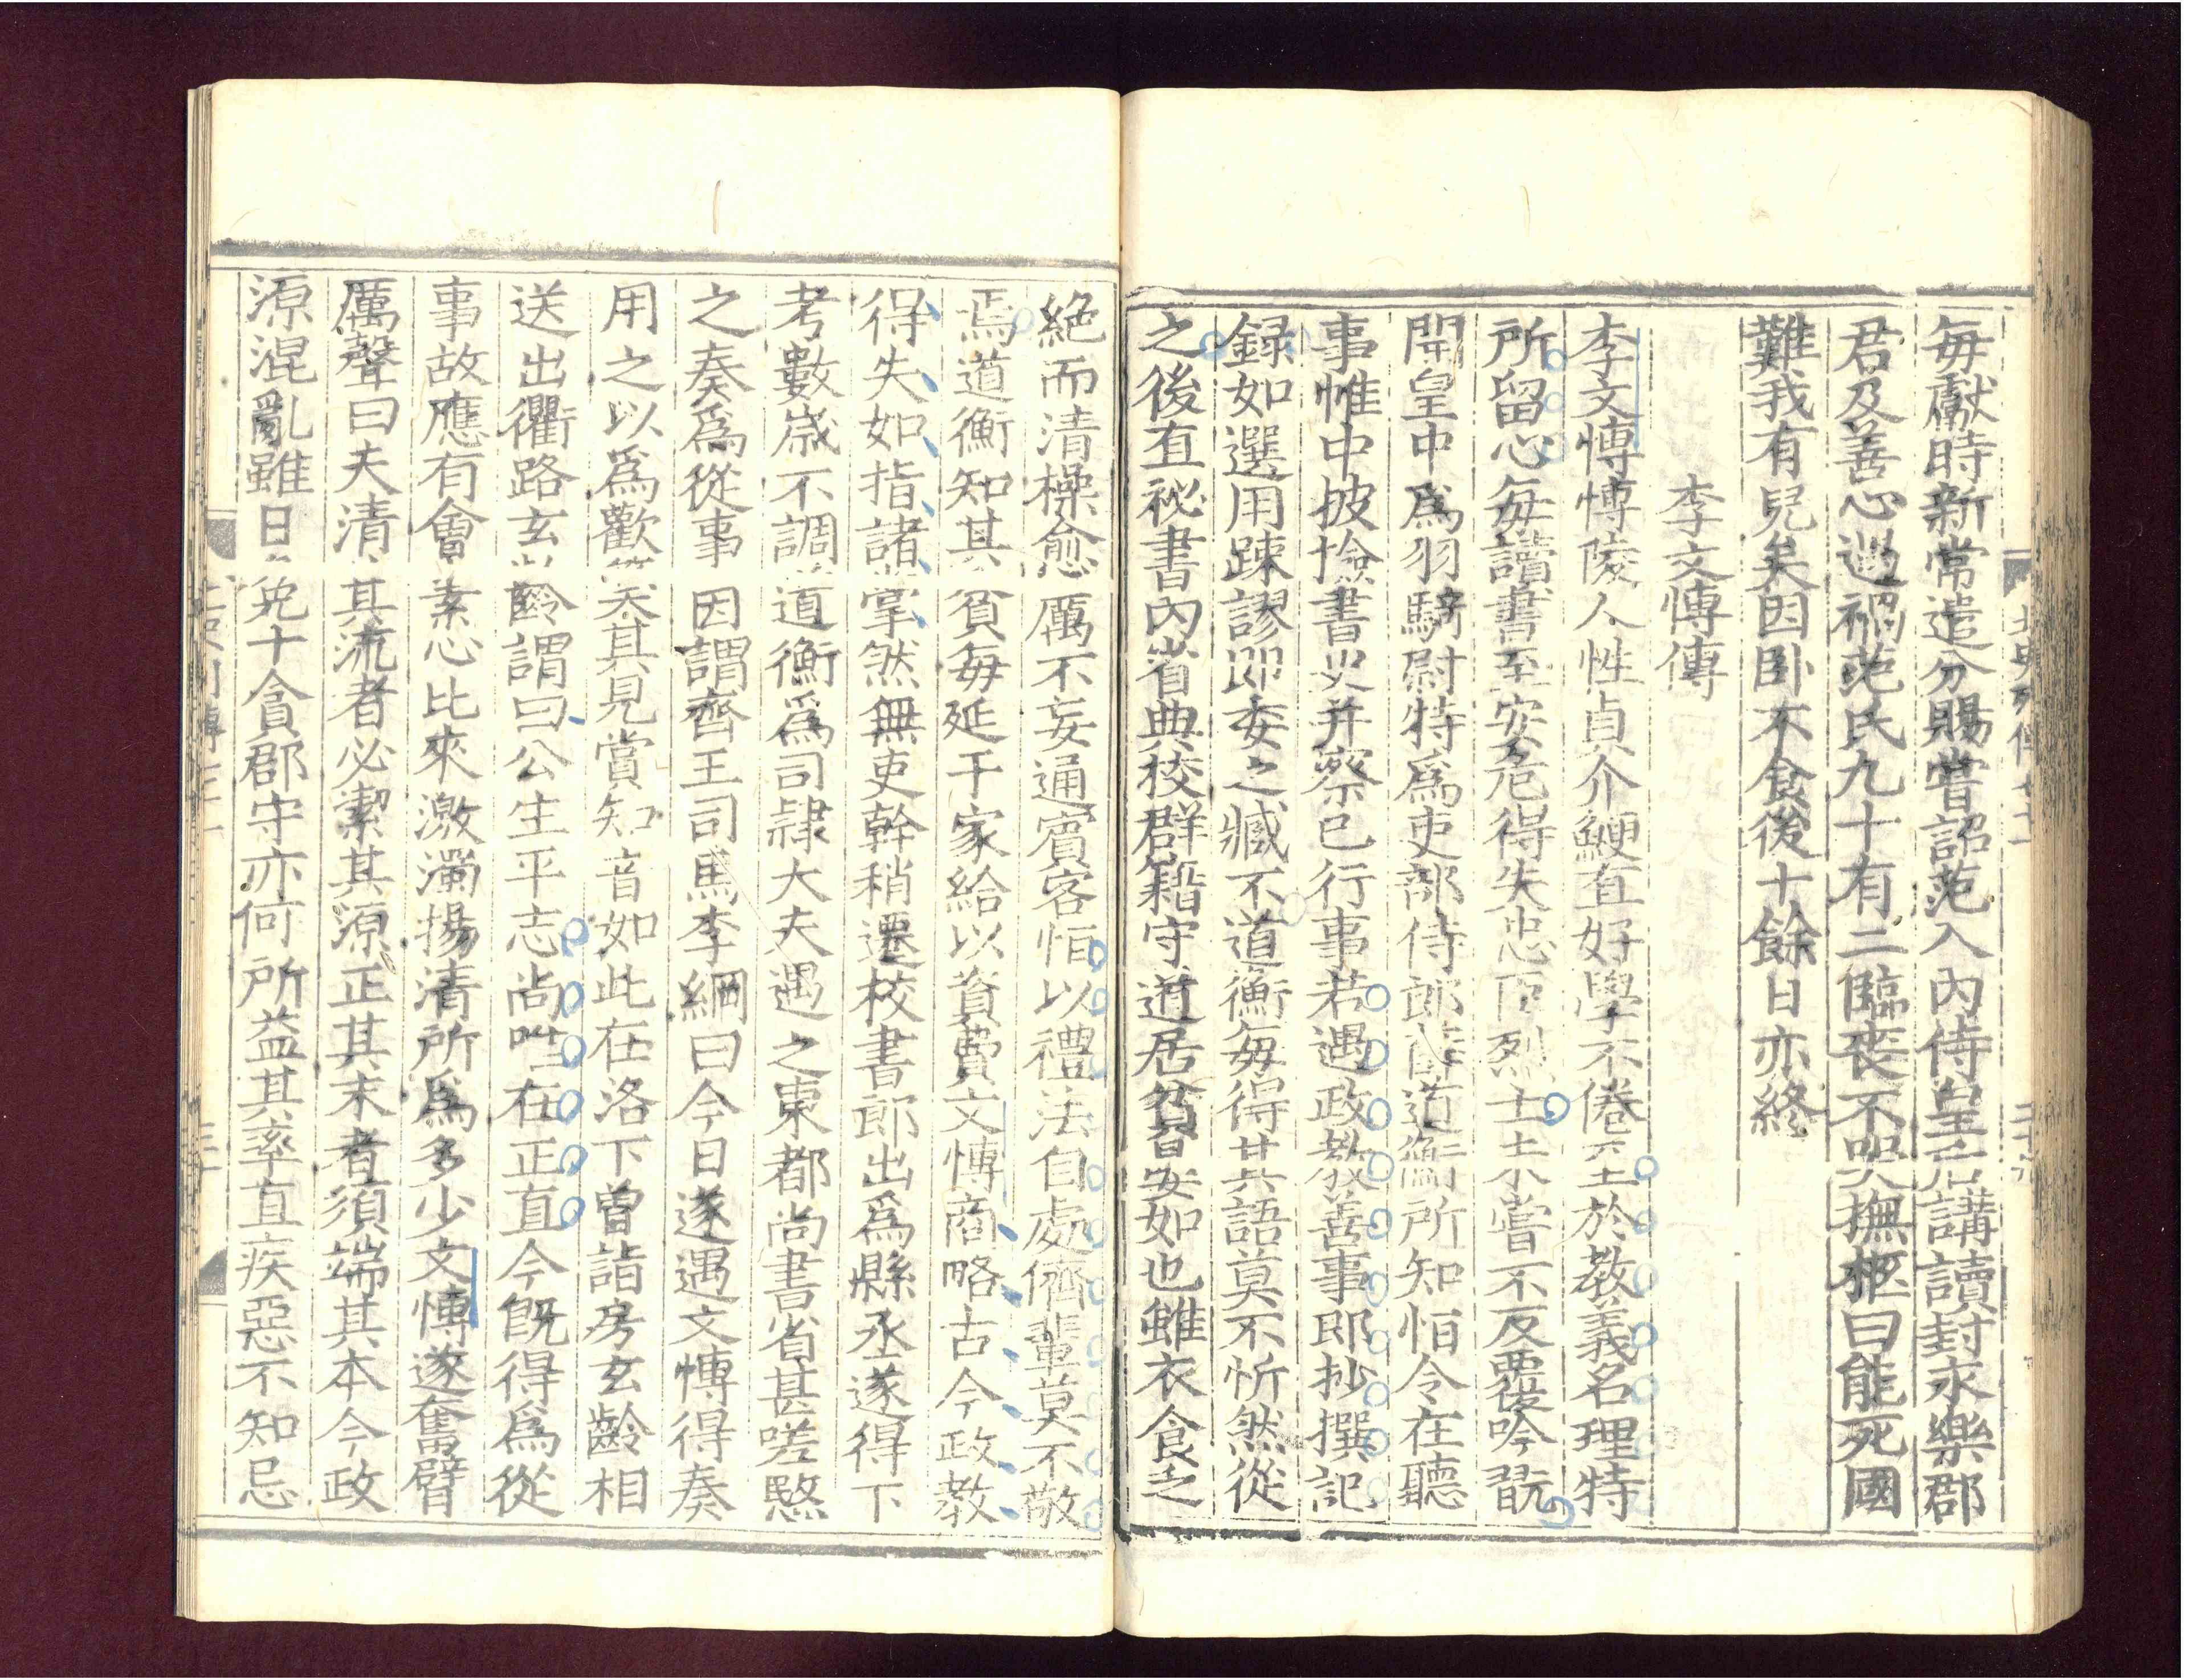 每獻時新常遣分賜嘗詔范入內侍皇后講讀封永樂郡
君及善心遇禍范氏九十有二臨喪不哭撫柩曰能死國
難我有兒矣因卧不食後十餘日亦終
李文博傳
李文博博陵人性貞介鯁直好學不倦至於教義名理特
所留心每讀書至安危得失忠臣烈士未嘗不反覆吟翫
開皇中爲羽騎尉特爲吏部侍郎薛道衡所知恒令在聽
事帷中披撿書史并察已行事若遇政教善事即抄撰記
録如選用踈謬即委之臧不道衡每得其語莫不忻然從
之後直祕書內省典校群籍守道居貧晏如也雖衣食乏
絶而清操愈厲不妄通賓客恒以禮法自處儕輩莫不敬
焉道衡知其貧每延于家給以資費文博商略古今政教
得失如指諸掌然無吏幹稍遷校書郎出爲縣丞遂得下
考數歲不調道衡爲司隷大夫遇之東都尚書省甚嗟愍
之奏爲從事因謂齊王司馬李綱曰今日遂遇文博得奏
用之以爲歡笑其見賞知音如此在洛下曾詣房玄齡相
送出衢路玄齡謂曰公生平志尚唯在正直今旣得爲從
事故應有會素心比來激濁揚清所爲多少文博遂奮臂
厲聲曰夫清其流者必潔其源正其末者須端其本今政
源混亂雖日免十貪郡守亦何所益其率直疾惡不知忌